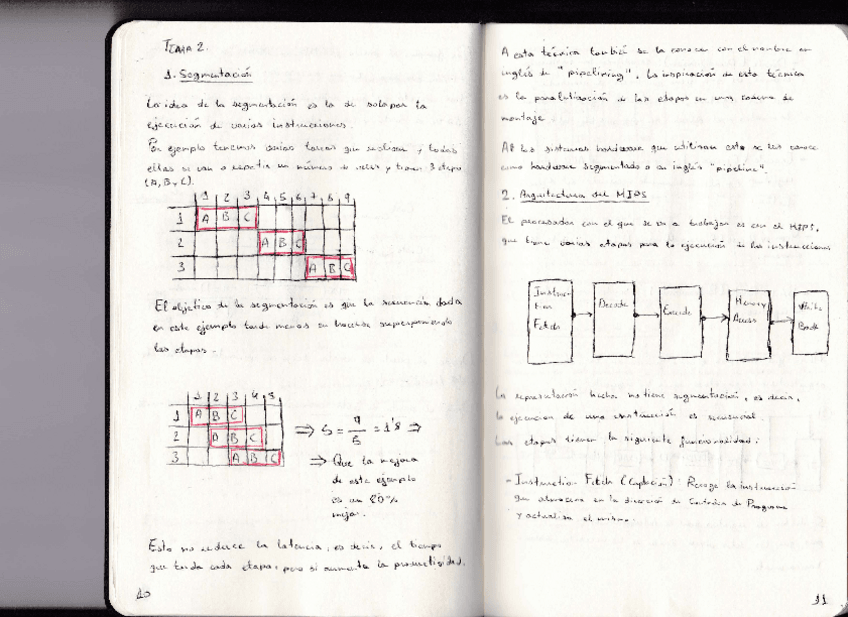 TEMA 2.
1. Segmentación
La idea de la segmentación es la de solapar la
ejecución de varias instrucciones.
Por ejemplo tenemos varias tareas que realizar y todas
ellas se van a repetir un número de veces y tienen 3 etapas
(A, B y C).
1 2 3 4 5 6 7 8 9
1 A B C
2 A B C
3 A B C
El objetivo de la segmentación es que la secuencia dada
en este ejemplo tarde menos en hacerse superponiendo
las etapas.
1 2 3 4 5
1 A B C
2 A B C
3 A B C
⇒ S = 9/5 = 1'8 ⇒
⇒ Que la mejora
de este ejemplo
es un 80%
mejor.
Esto no reduce la latencia, es decir, el tiempo
que tarda cada etapa, pero si aumenta la productividad.
10
A esta técnica también se la conoce con el nombre en
inglés de "pipelining". La inspiración de esta técnica
es la paralelización de las etapas en una cadena de
montaje
A los sistemas hardware que utilizan esto se les conoce
como hardware segmentado o en inglés "pipeline".
2. Arquitectura del MIPS
El procesador con el que se va a trabajar es con el MIPS,
que tiene varias etapas para la ejecución de las instrucciones
Instruc-
tion
Fetch
Decode
Execute
Memory
Access
Write
Back
La representación hecha no tiene segmentación, es decir,
la ejecución de una instrucción es secuencial.
Las etapas tienen la siguiente funcionalidad:
- Instruction Fetch (Captación): Recoge la instrucción
que almacena en la dirección de Contador de Programa
y actualiza el mismo.
11